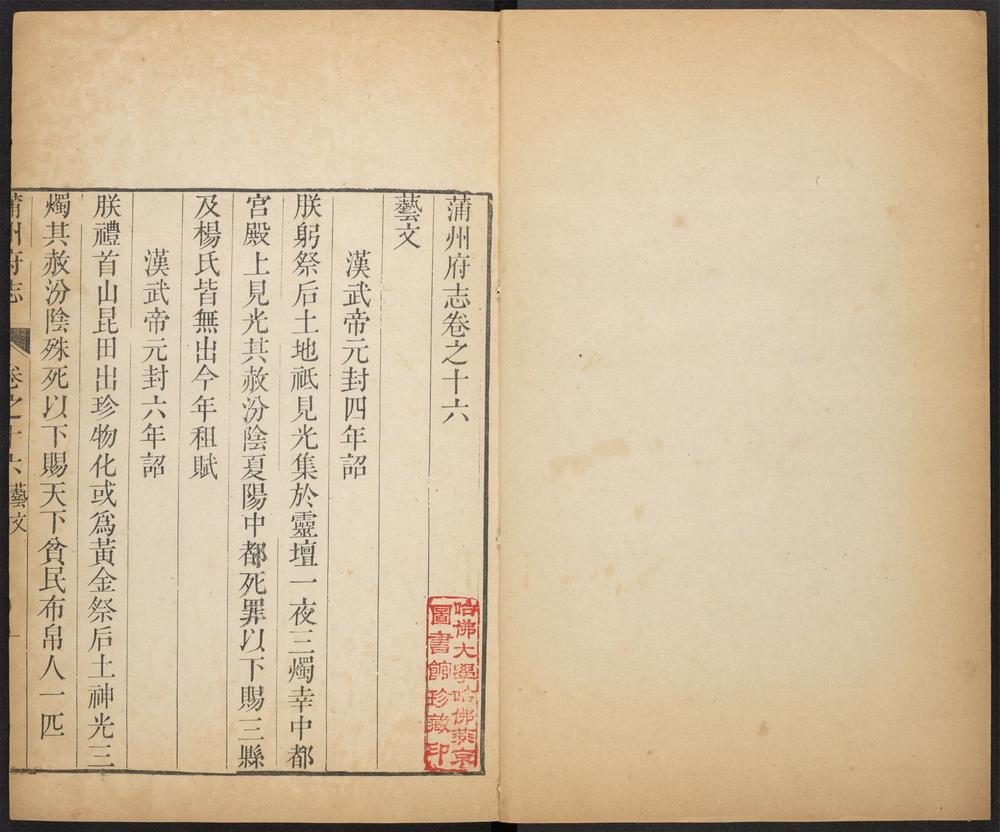 蒲州府志卷之十六
藝文
漢武帝元封四年詔
朕躬祭后土地祇見光集於靈壇一夜三燭幸中都
宮殿上見光其赦汾陰夏陽中都死罪以下賜三縣
及楊氏皆無出今年租賦
漢武帝元封六年詔
朕禮首山昆田出珍物化或爲黃金祭后土神光三
燭其赦汾陰殊死以下賜天下貧民布帛人一匹
蒲州府志 卷之十六 藝文 一
哈佛大學哈佛燕京
圖書館珍藏印